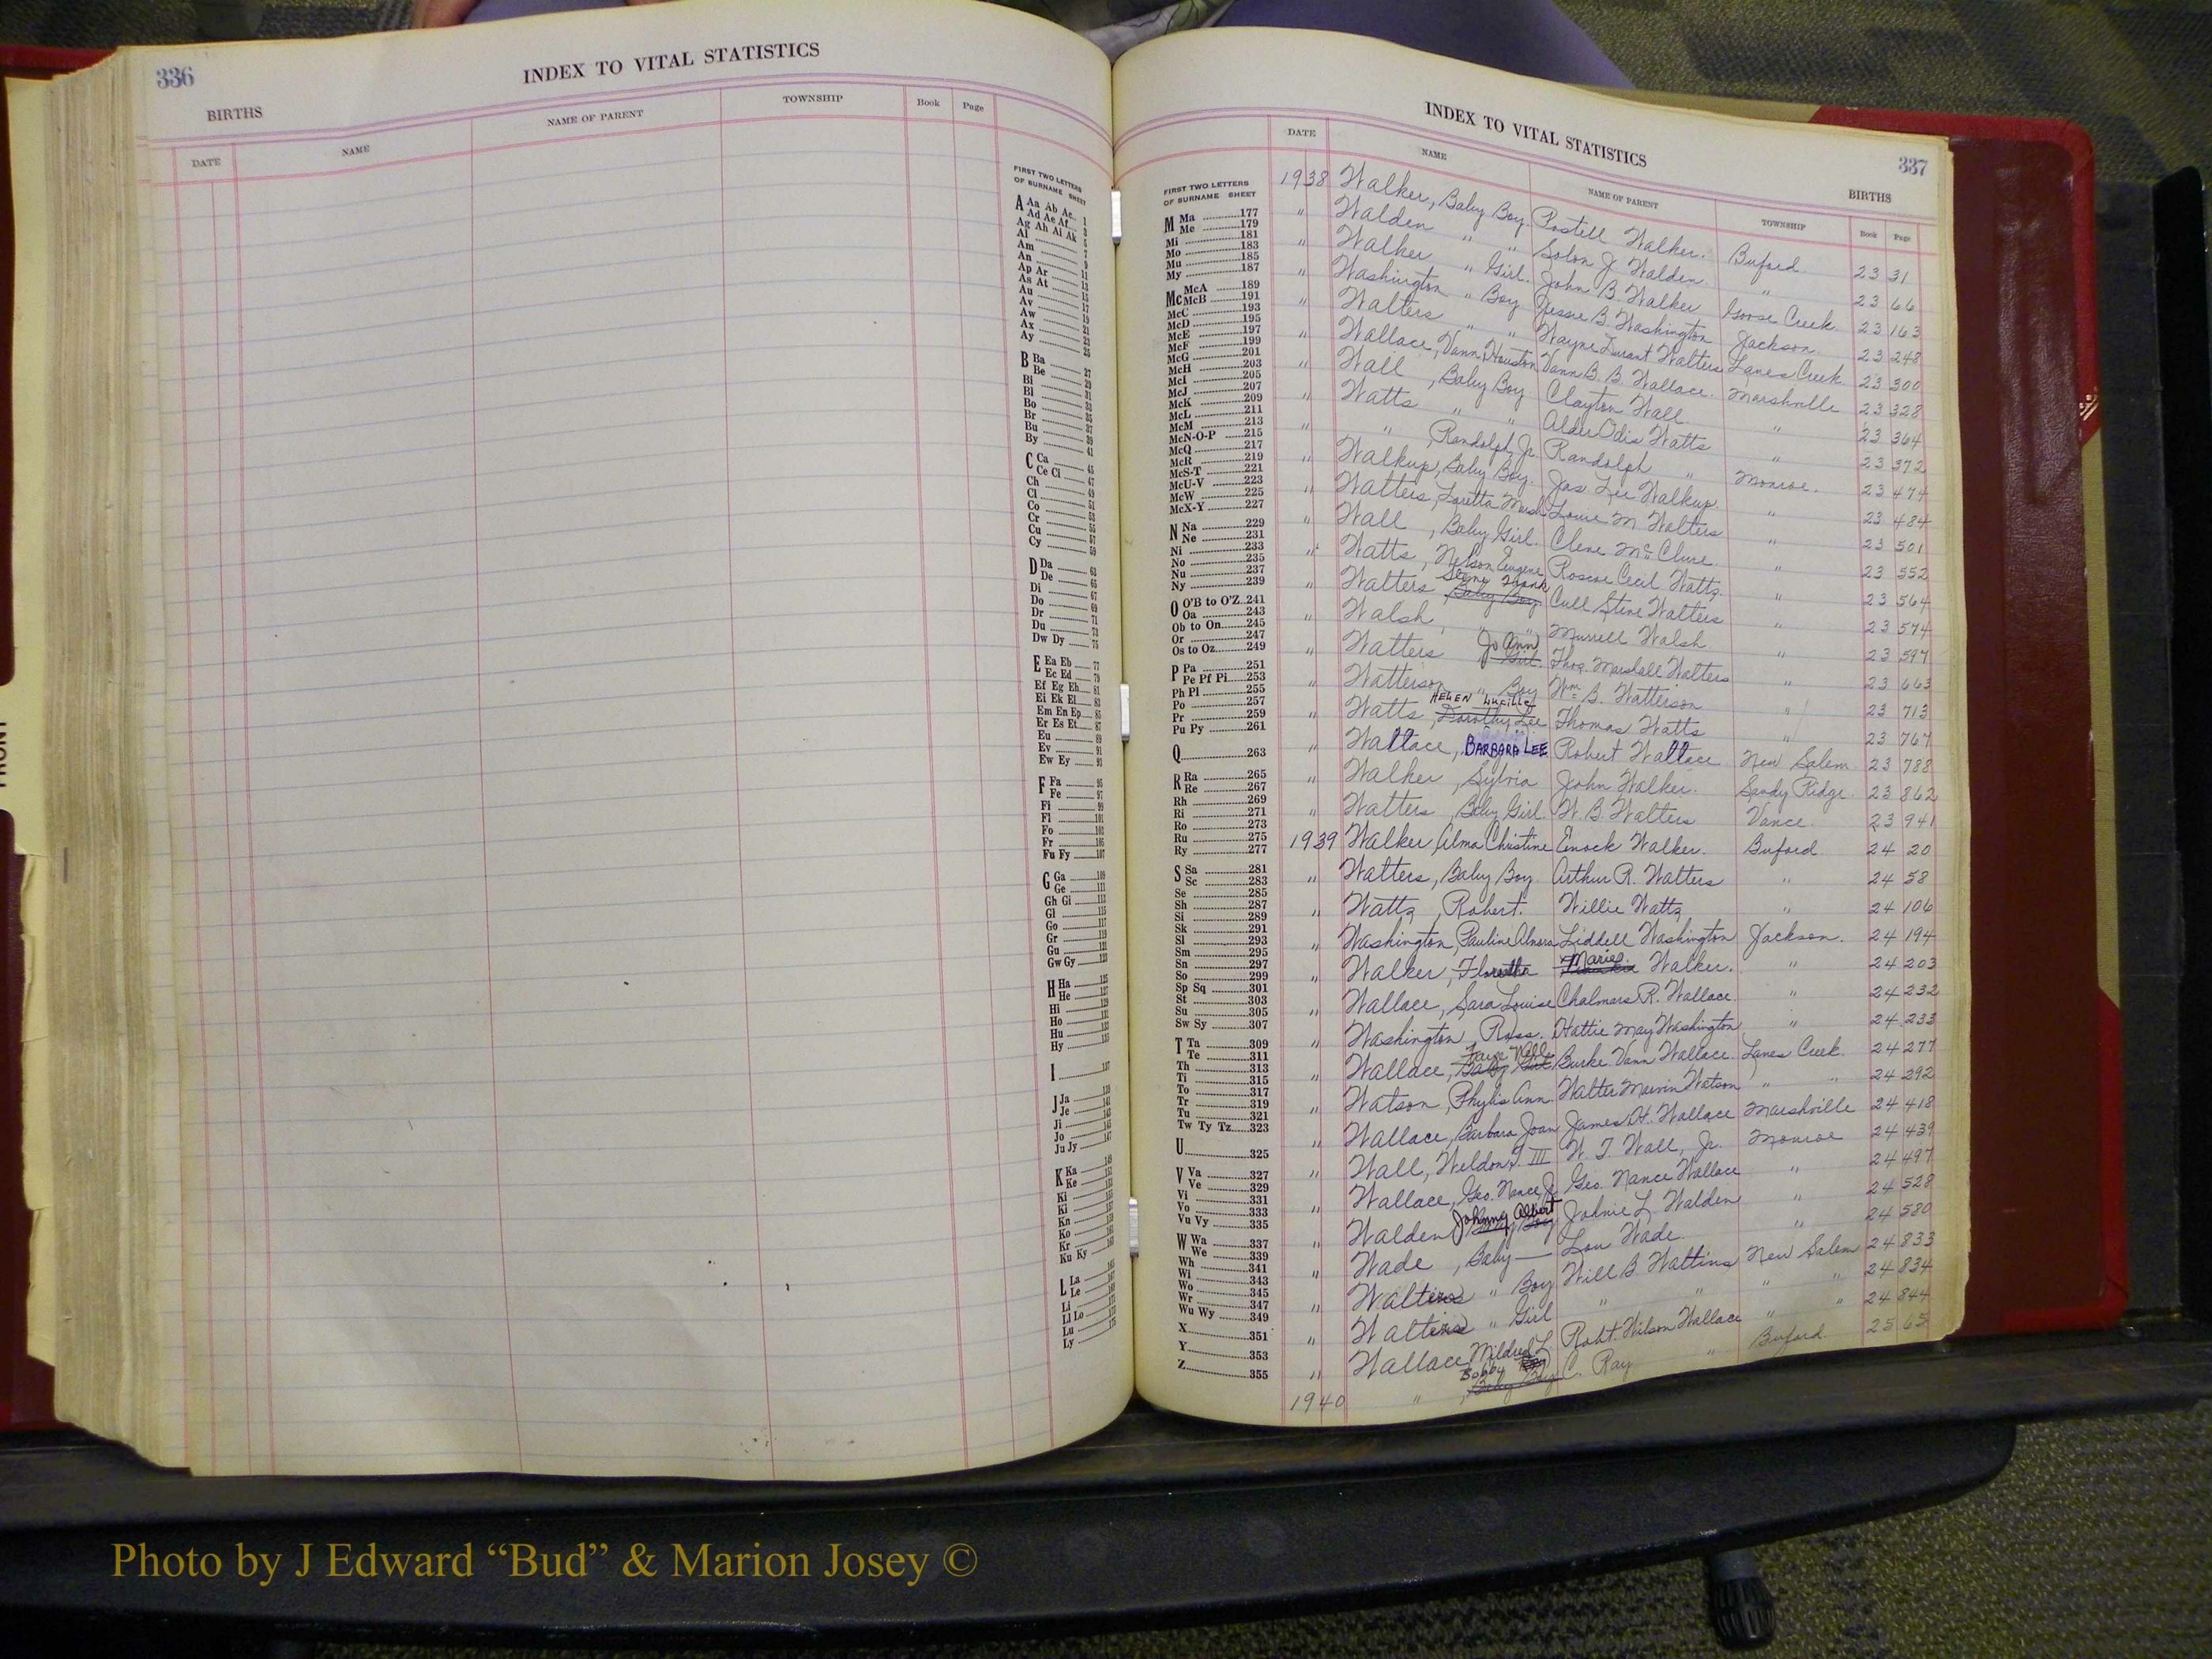 336
INDEX TO VITAL STATISTICS
BIRTHS
DATE NAME NAME OF PARENT TOWNSHIP Book Page
FIRST TWO LETTERS
OF SURNAME SHEET
A Aa Ab Ac 1
Ad Ae Af 3
Ag Ah Ai Ak 5
Al 7
Am 9
An
Ap Ar 11
As At 13
Au 15
Av 17
Aw 19
Ax 21
Ay
B Ba 27
Be 29
Bi 31
Bl 33
Bo 35
Br 37
Bu 39
By 41
C Ca 45
Ce Ci 47
Ch 49
Cl 51
Co 53
Cr 55
Cu 57
Cy 59
D Da 63
De 65
Di 67
Do 69
Dr 71
Du 73
Dw Dy 75
E Ea Eb 77
Ec Ed 79
Ef Eg Eh 81
Ei Ek El 83
Em En Ep 85
Er Es Et 87
Eu 89
Ev 91
Ew Ey 93
F Fa 95
Fe 97
Fi 99
Fl 101
Fo 103
Fr 105
Fu Fy 107
G Ga 109
Ge 111
Gh Gi 113
Gl 115
Go 117
Gr 119
Gu 121
Gw Gy 123
H Ha 125
He 127
Hi 129
Ho 131
Hu 133
Hy 135
I 137
J Ja 139
Je 141
Ji 143
Jo 145
Ju Jy 147
K Ka 149
Ke 151
Ki
Kl
Kn
Ko
Kr
Ku Ky
L La
Le
Li
Ll Lo
Lu
Ly
INDEX TO VITAL STATISTICS
337
BIRTHS
DATE NAME NAME OF PARENT TOWNSHIP Book Page
FIRST TWO LETTERS
OF SURNAME SHEET
M Ma 177
Me 179
Mi 181
Mo 183
Mu 185
My 187
Mc McA 189
McB 191
McC 193
McD 195
McE 197
McF 199
McG 201
McH 203
McI 205
McJ 207
McK 209
McL 211
McM 213
McN-O-P 215
McQ 217
McR 219
McS-T 221
McU-V 223
McW 225
McX-Y 227
N Na 229
Ne 231
Ni 233
No 235
Nu 237
Ny 239
O O'B to O'Z 241
Oa 243
Ob to On 245
Or 247
Os to Oz 249
P Pa 251
Pe Pf Pi 253
Ph Pl 255
Po 257
Pr 259
Pu Py 261
Q 263
R Ra 265
Re 267
Rh 269
Ri 271
Ro 273
Ru 275
Ry 277
S Sa 281
Sc 283
Se 285
Sh 287
Si 289
Sk 291
Sl 293
Sm 295
Sn 297
So 299
Sp Sq 301
St 303
Su 305
Sw Sy 307
T Ta 309
Te 311
Th 313
Ti 315
To 317
Tr 319
Tu 321
Tw Ty Tz 323
U 325
V Va 327
Ve 329
Vi 331
Vo 333
Vu Vy 335
W Wa 337
We 339
Wh 341
Wi 343
Wo 345
Wr 347
Wu Wy 349
X 351
Y 353
Z 355
1938 Walker, Baby Boy. Postell Walker. Buford 23 31
" Walden " " Solon J. Walden " 23 66
" Walker " Girl. John B. Walker Goose Creek 23 163
" Washington " Boy Jessie B. Washington Jackson 23 248
" Walters " " Wayne Durant Walters Lanes Creek 23 300
" Wallace, Vann Houston Vann B. B. Wallace. Marshville 23 328
" Wall, Baby Boy Clayton Wall " 23 364
" Watts " " Odis Watts " 23 372
" " , Randolph Jr. Randolph " Monroe. 23 474
" Walkup, Baby Boy. Jas Lee Walkup. " 23 484
" Walters, Loretta Louie M Walters " 23 501
" Wall, Baby Girl. Clene McClure. " 23 552
" Watts, Nelson Eugene Roscoe Cecil Watts. " 23 564
" Walters, Baby Boy Steve Frank Cull Steve Walters " 23 574
" Walsh, " " Murrell Walsh " 23 597
" Watters Girl. Jo Ann Thos. Marshall Walters " 23 663
" Watterson " Boy Wm. B. Watterson " 23 713
" Watts, Dorothy Lee HELEN Lucille Thomas Watts " 23 767
" Wallace, BARBARA LEE Robert Wallace New Salem 23 788
" Walker, Sylvia John Walker. Sandy Ridge 23 862
" Watters, Baby Girl. W. B. Walters Vance. 23 941
1939 Walker, Alma Christine Enock Walker. Buford 24 20
" Watters, Baby Boy. Arthur R. Walters " 24 58
" Watts, Robert. Willie Watts " 24 106
" Washington, Pauline Liddell Washington Jackson. 24 194
" Walker, Floretha Marie Walker. " 24 203
" Wallace, Sara Louise Chalmers R. Wallace. " 24 232
" Washington Ross. Hattie May Washington " 24 233
" Wallace, Baby Girl Faye Nell Burke Vann Wallace. Lanes Creek 24 277
" Watson, Phylis Ann. Walter Marvin Watson " " 24 292
" Wallace, Barbara Joan James H. Wallace Marshville 24 418
" Wall, Weldon T. III W. T. Wall, Jr. Monroe 24 439
" Wallace, Geo. Nance Jr. Geo. Nance Wallace " 24 497
" Walden, Baby Boy Johnny Albert Johnie L. Walden " 24 528
" Wade, Baby — Lou Wade. " 24 580
" Walters " Boy Will B Watkins New Salem 24 833
" Walters " Girl " " " " 24 834
" Wallace Mildred L. Robt. Wilson Wallace " " 24 844
1940 " , Baby Boy Bobby Ray C. Ray " Buford 25 65
Photo by J Edward “Bud” & Marion Josey ©